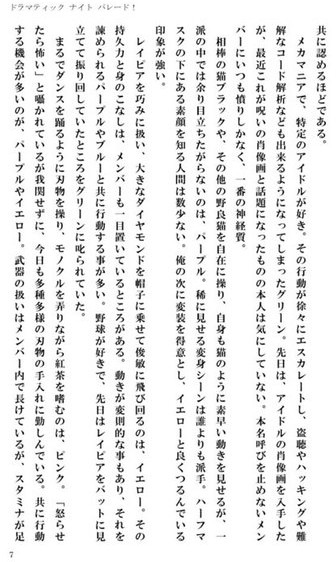 ドラマティック ナイト パレード！
共に認めるほどである。
　メカマニアで、特定のアイドルが好き。その行動が徐々にエスカレートし、盗聴やハッキングや難
解なコード解析なども出来るようになってしまったグリーン。先日は、アイドルの肖像画を入手した
が、最近これが呪いの肖像画と話題になったものの本人は気にしていない。本名呼びを止めないメン
バーにいつも憤りしかなく、一番の神経質。
　相棒の猫ブラックや、その他の野良猫を自在に操り、自身も猫のように素早い動きを見せるが、一
派の中では余り目立ちたがらないのは、パープル。稀に見せる変身シーンは誰よりも派手。ハーフマ
スクの下にある素顔を知る人間は数少ない。俺の次に変装を得意とし、イエローと良くつるんでいる
印象が強い。
　レイピアを巧みに扱い、大きなダイヤモンドを帽子に乗せて俊敏に飛び回るのは、イエロー。その
持久力と身のこなしは、メンバーも一目置いているところがある。動きが変則的な事もあり、それを
諫められるパープルやブルーと共に行動する事が多い。野球が好きで、先日はレイピアをバットに見
立てて振り回していたところをグリーンに叱られていた。
　まるでダンスを踊るように刃物を操り、モノクルを弄りながら紅茶を嗜むのは、ピンク。「怒らせ
たら怖い」と囁かれているが我関せずに、今日も多種多様の刃物の手入れに勤しんでいる。共に行動
する機会が多いのが、パープルやイエロー。武器の扱いはメンバー内で長けているが、スタミナが足
7